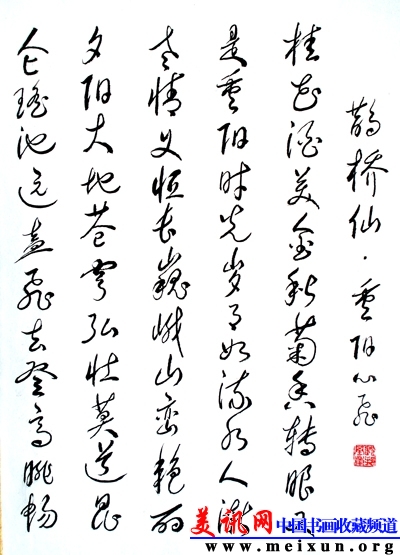 鹊桥仙·重阳心飞
桂花酒美金秋菊香转眼又
是重阳时光岁月如流水人渐
老情义恒长巍峨山峦艳丽
夕阳大地苍穹弘壮莫道昆
仑瑶池远飞去登高眺畅
美讯网 中国书画收藏频道
www.meixun.org